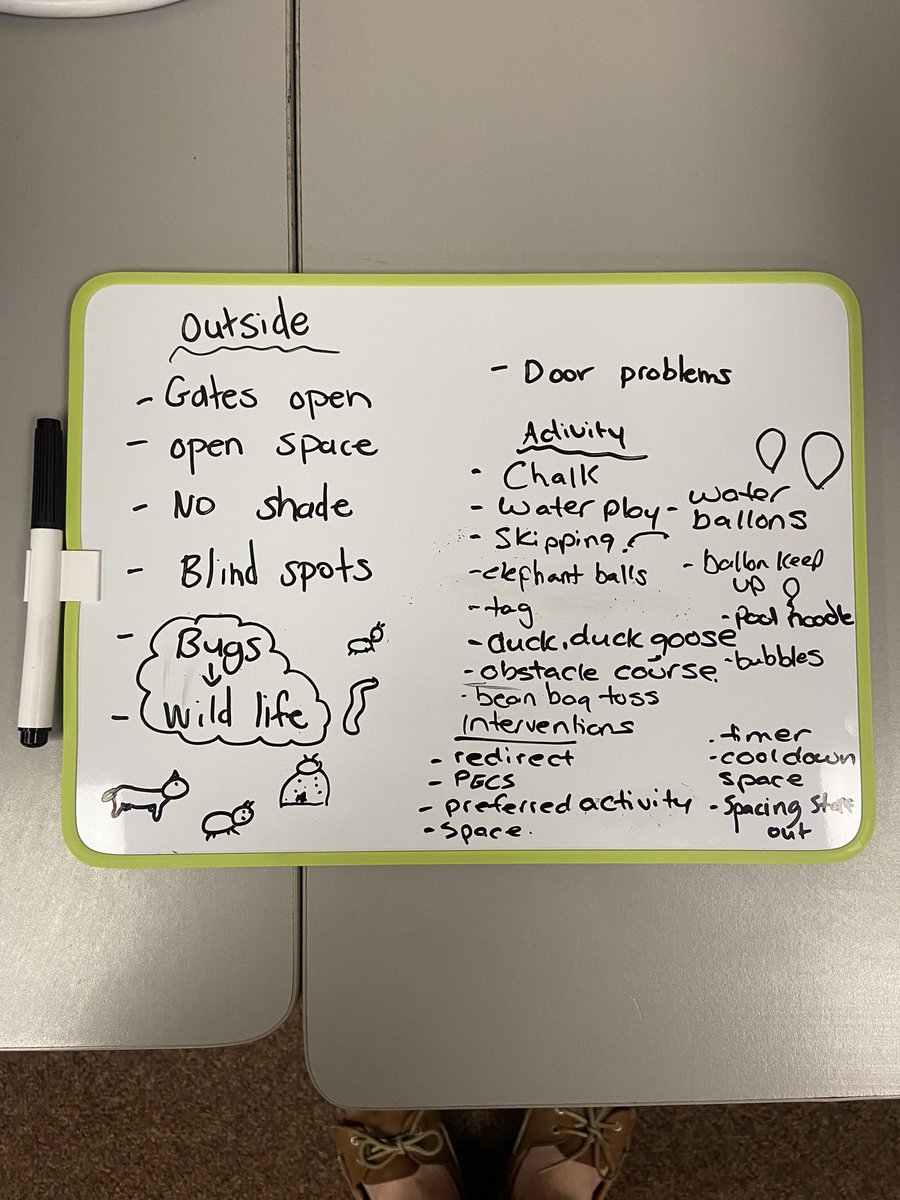 Outside
- Gates open
- open space
- No shade
- Blind spots
- Bugs
- Wild life
- Door problems
Activity
- Chalk
- Water play - water ballons
- Skipping.
- elephant balls
- tag
- duck, duck goose
- obstacle course.
- bean bag toss
- ballon keep
up
- pool noodle
- bubbles
Interventions
- redirect
- PECS
- preferred activity
- Space.
. timer
- cool down
space
- Spacing staff
out